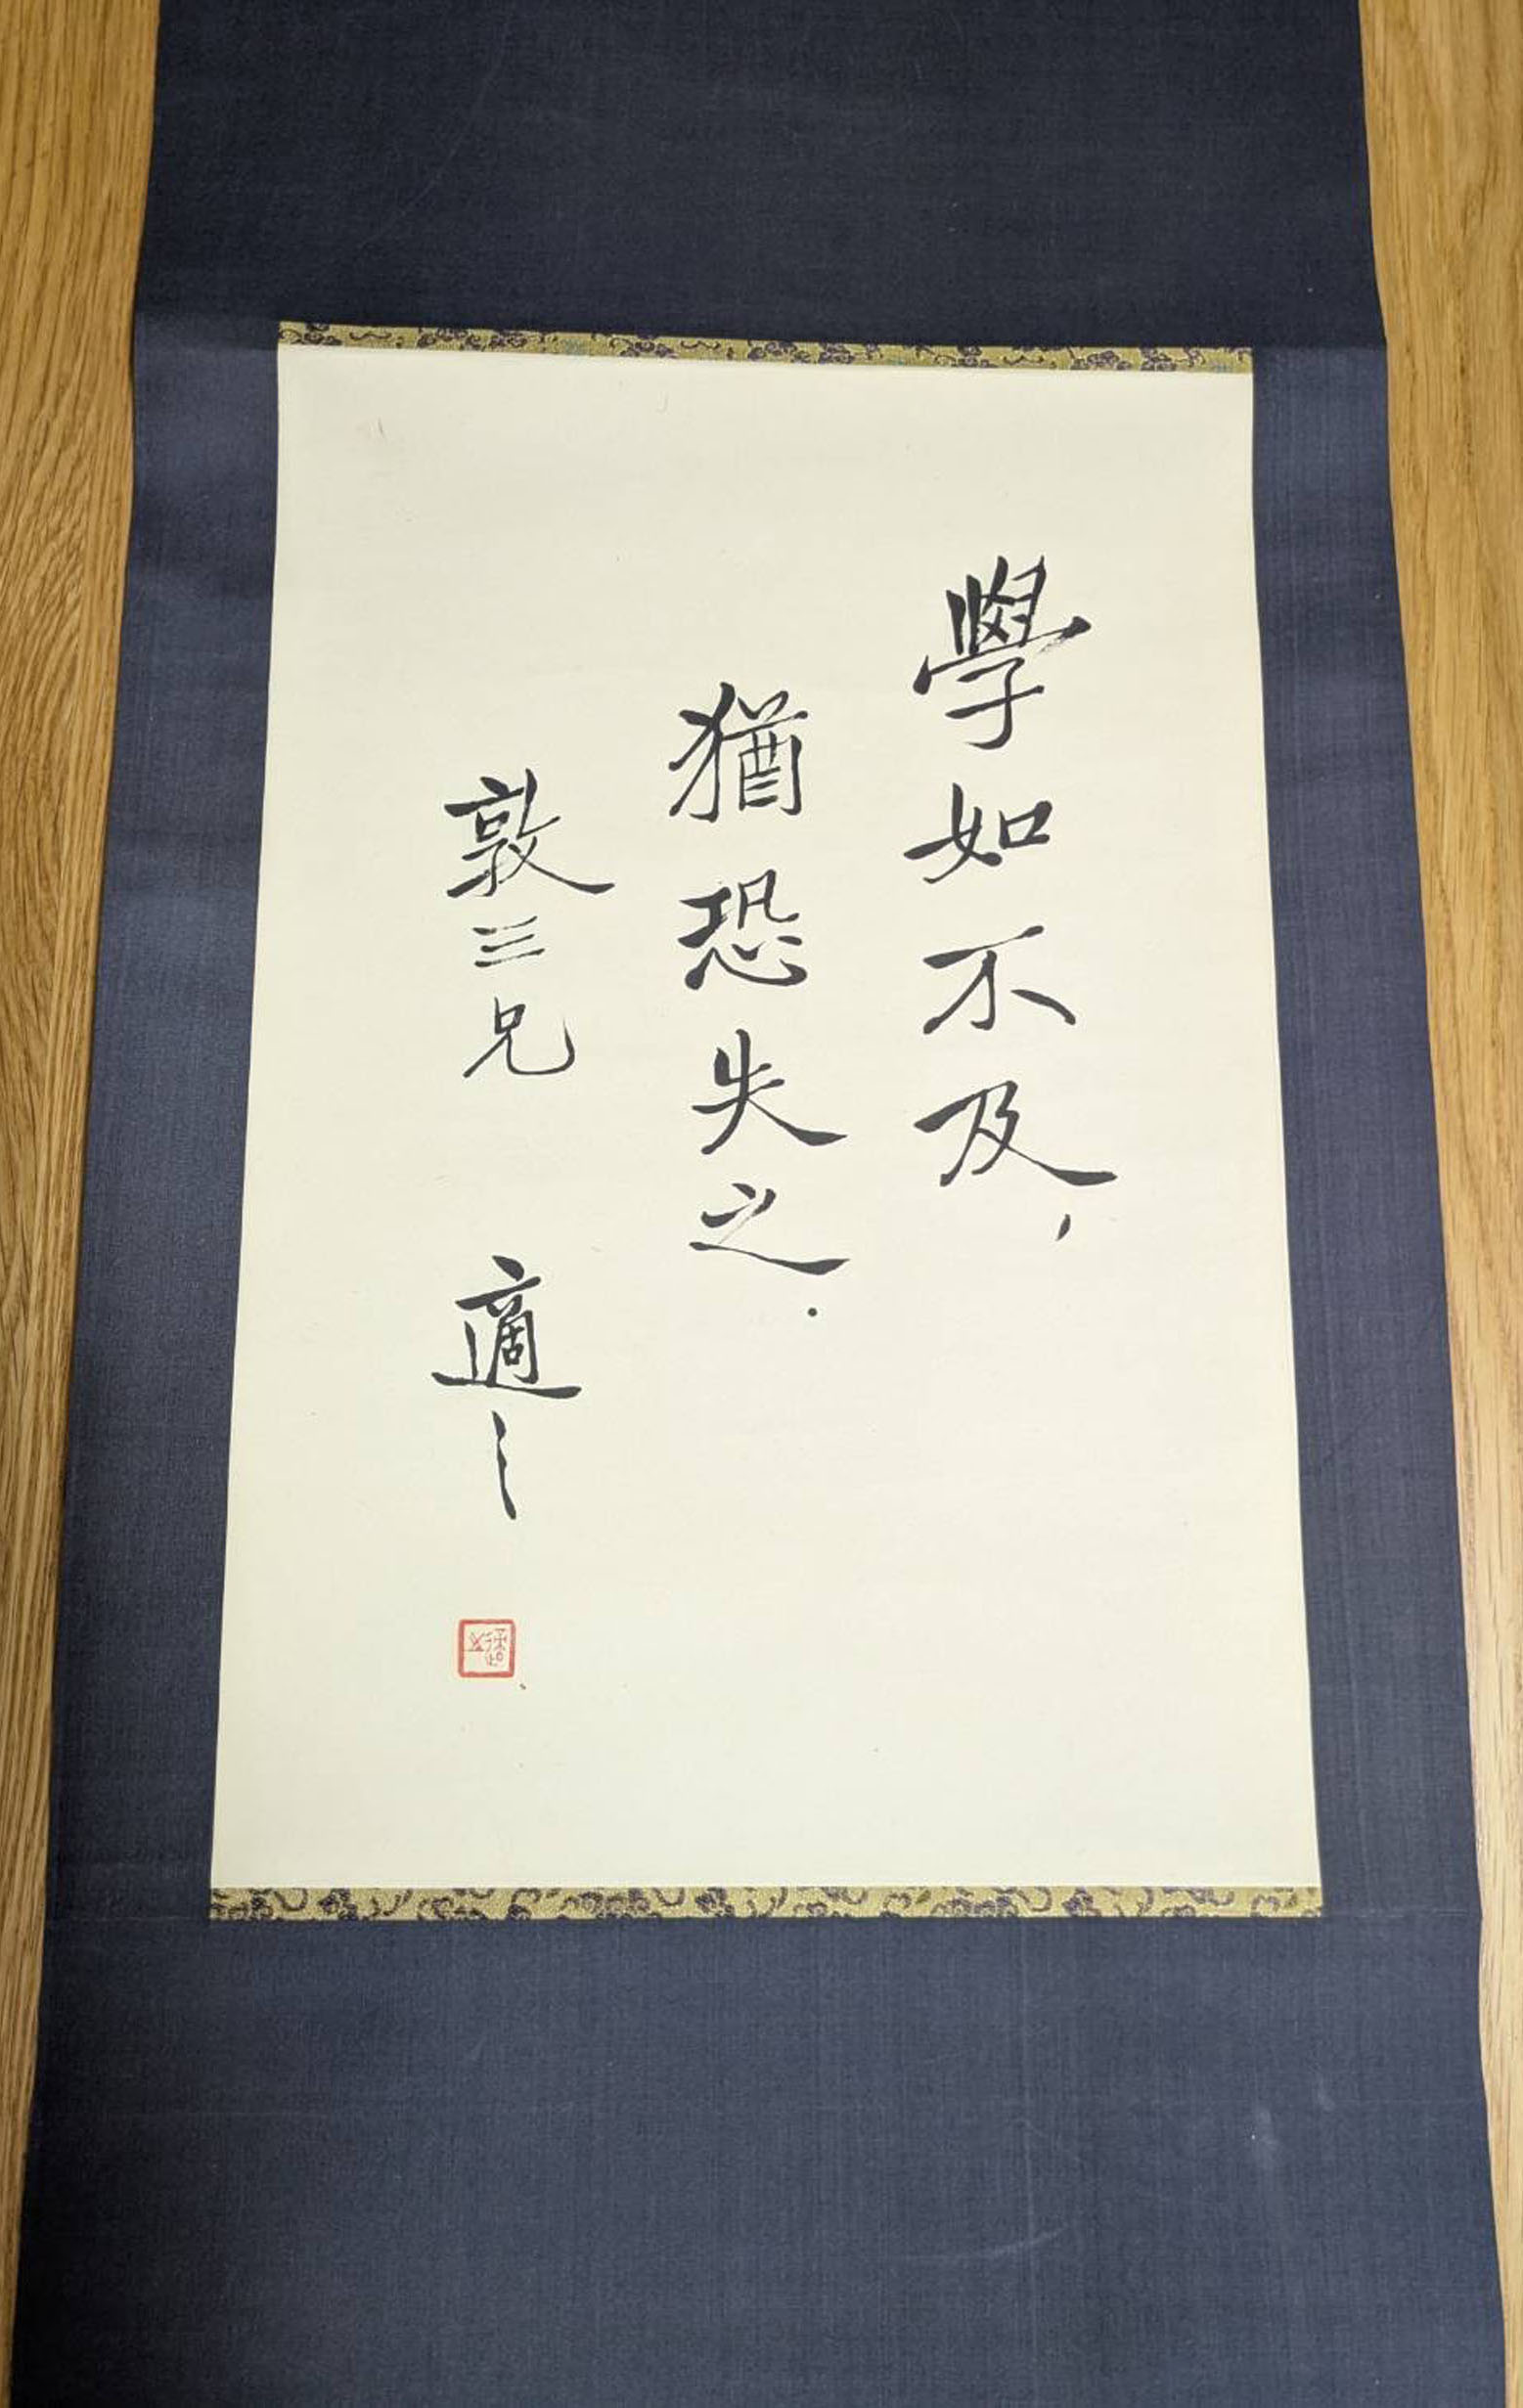 學如不及，
猶恐失之．
敦三兄 適之